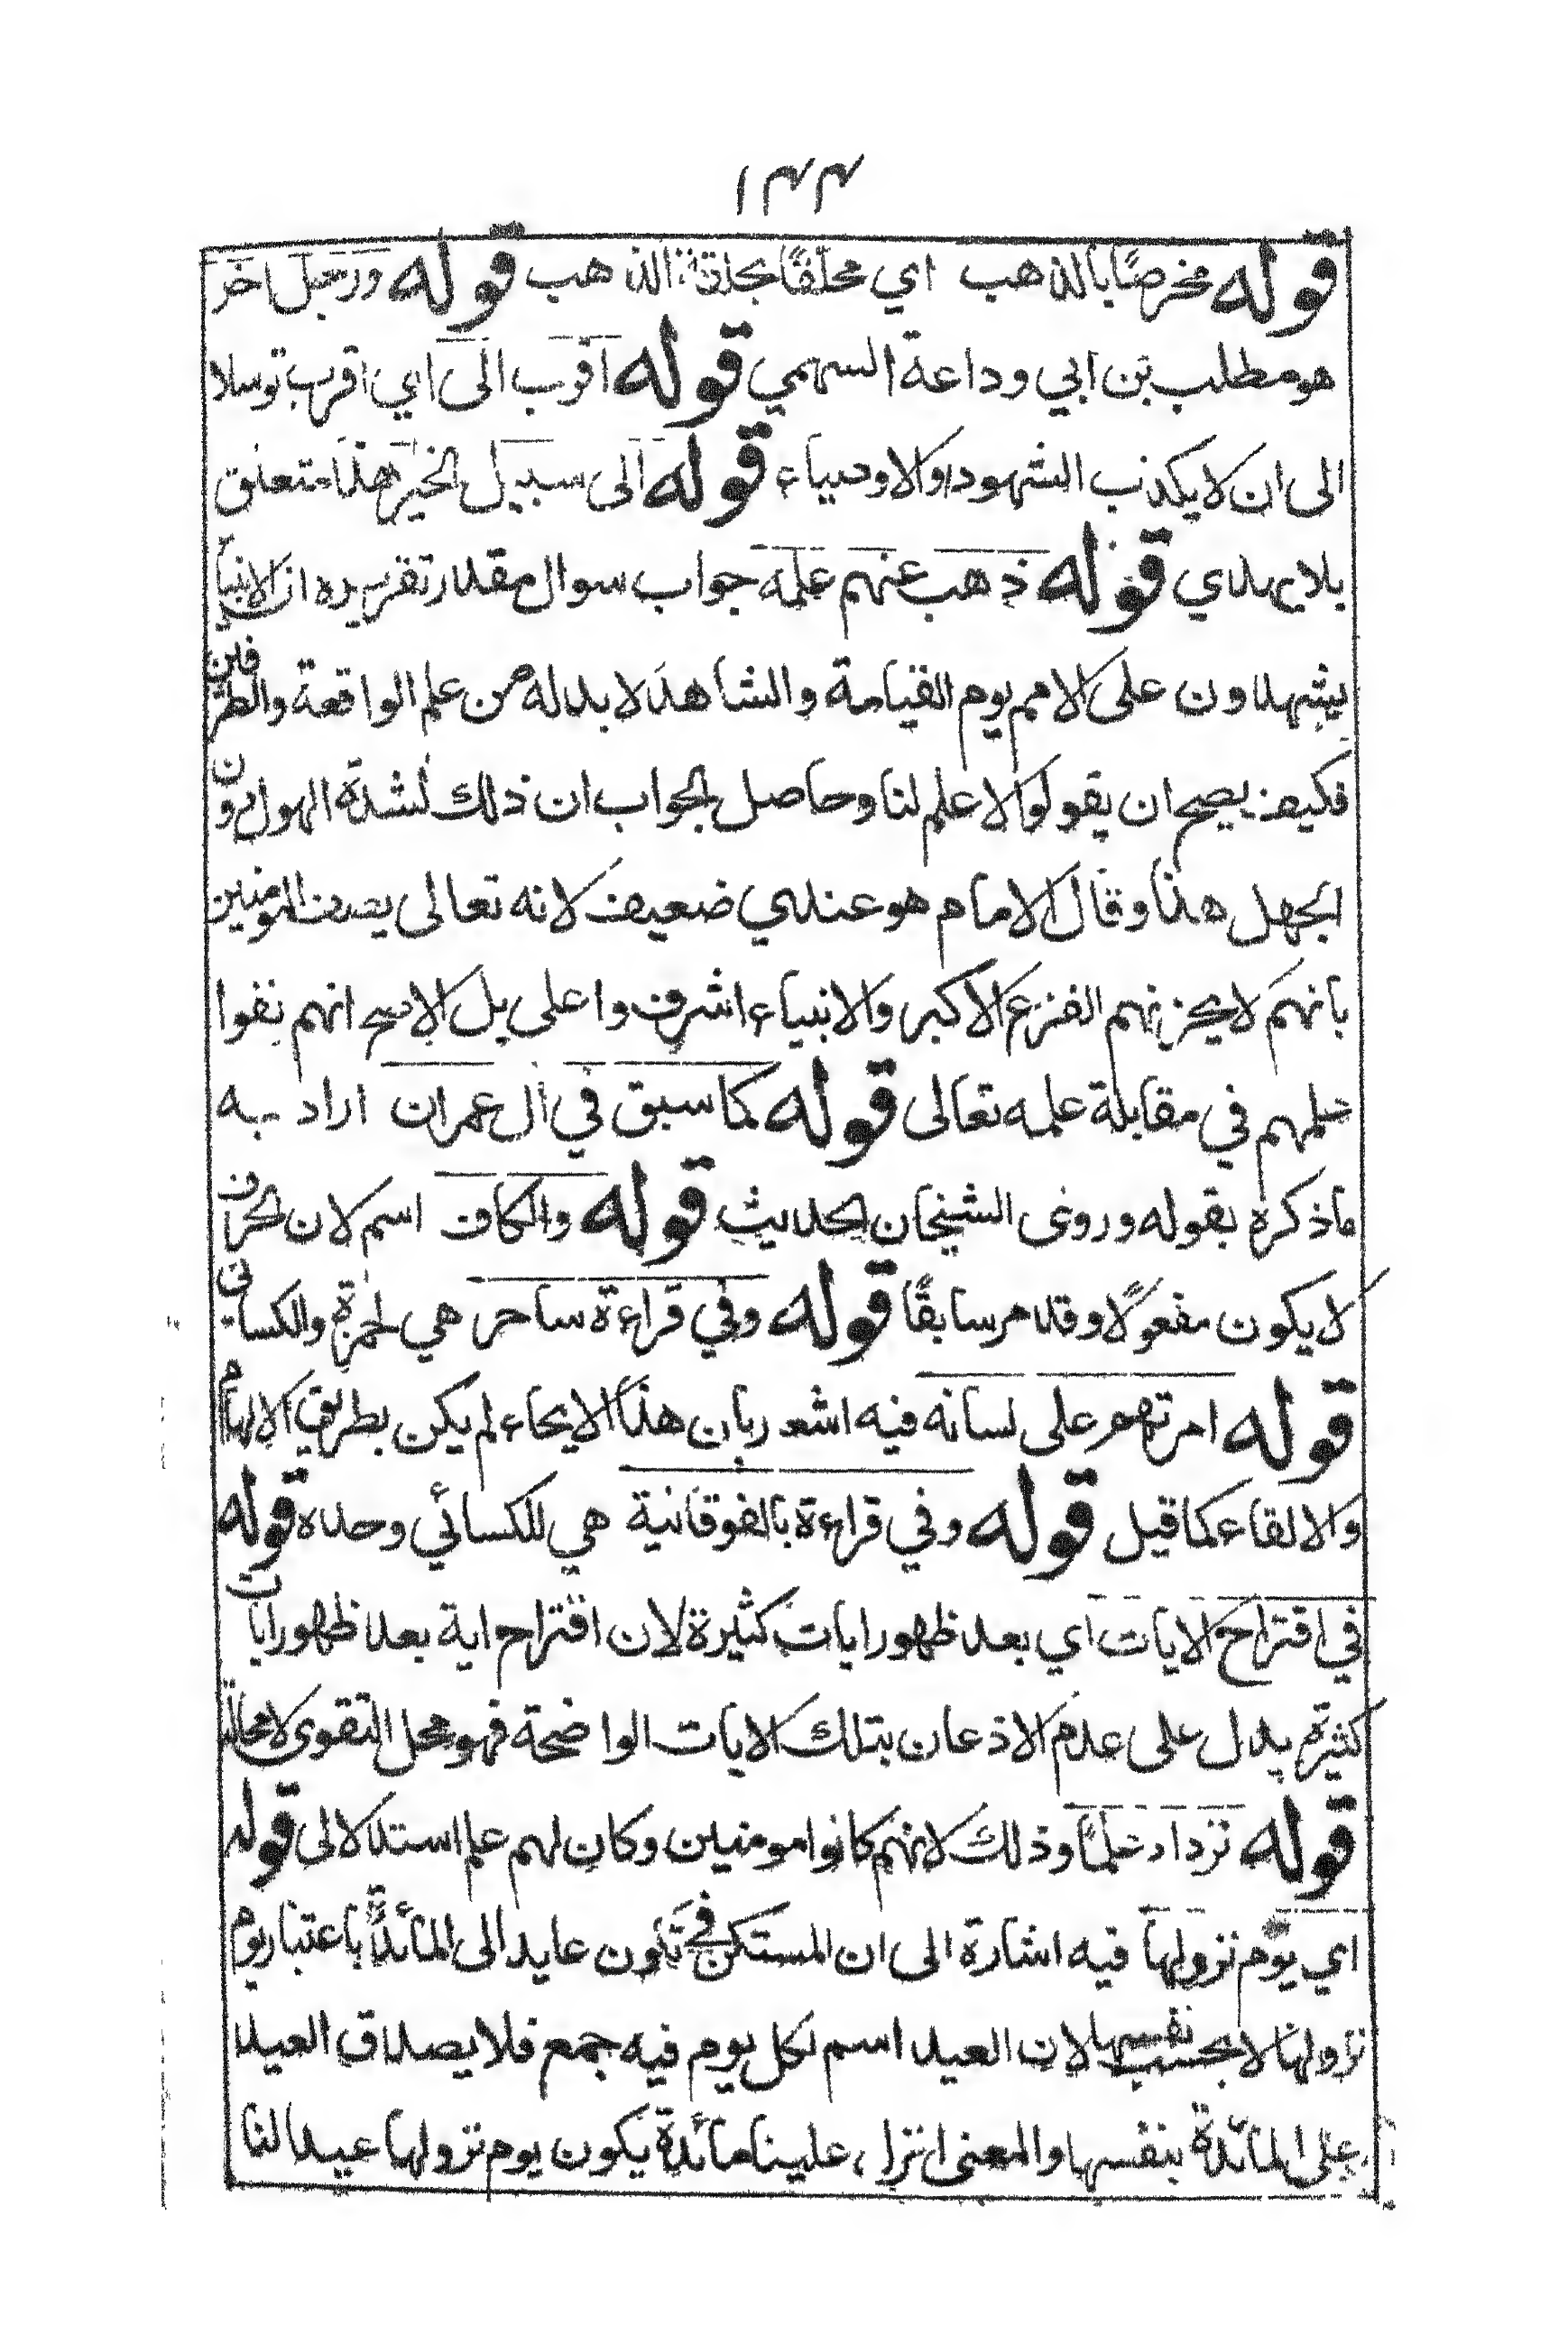 ١٣٣
قوله مخرصًا بالذهب اي محلقًا بحلقة الذهب قوله ورجل اخر
هو مطلب بن ابي وداعة السهمي قوله اقرب الى اي اقرب توسلا
الى ان لا يكذب الشهود والاوصياء قوله الى سبيل الخير هذا متعلق
بلا يهدي قوله ذهب عنهم علمه جواب سوال مقدر تقريره ان الانبياء
يشهدون على الامم يوم القيامة والشاهد لا بد له من علم الواقعة والطرفين
فكيف يصح ان يقولوا لا علم لنا وحاصل الجواب ان ذلك لشدة الهول دون
الجهل هذا وقال الامام هو عندي ضعيف لانه تعالى يصف المومنين
بانهم لا يحزنهم الفزع الاكبر والانبياء اشرف واعلى بل الاصح انهم نفوا
علمهم في مقابلة علمه تعالى قوله كما سبق في ال عمران اراد به
ماذكره بقوله وروى الشيخان الحديث قوله والكاف اسم لان الحرف
لا يكون مفعولًا وقد مر سابقًا قوله وفي قراءة ساحر هي لحمزة والكسائي
قوله امرتهم على لسانه فيه اشعار بان هذا الايحاء لم يكن بطريق الالهام
والالقاء كما قيل قوله وفي قراءة بالفوقانية هي للكسائي وحده قوله
في اقتراح الايات اي بعد ظهور ايات كثيرة لان اقتراح اية بعد ظهور ايات
كثيرة يدل على عدم الاذعان بتلك الايات الواضحة فهو محل التقوى لا محالة
قوله نزداد علمًا وذلك لانهم كانوا مومنين وكان لهم علم استدلالى قوله
اي يوم نزولها فيه اشارة الى ان المستكن في تكون عايد الى المائدة باعتبار يوم
نزولها لا بحسب نفسها لان العيد اسم لكل يوم فيه جمع فلا يصدق العيد
على المائدة بنفسها والمعنى انزل علينا مائدة يكون يوم نزولها عيدا لنا